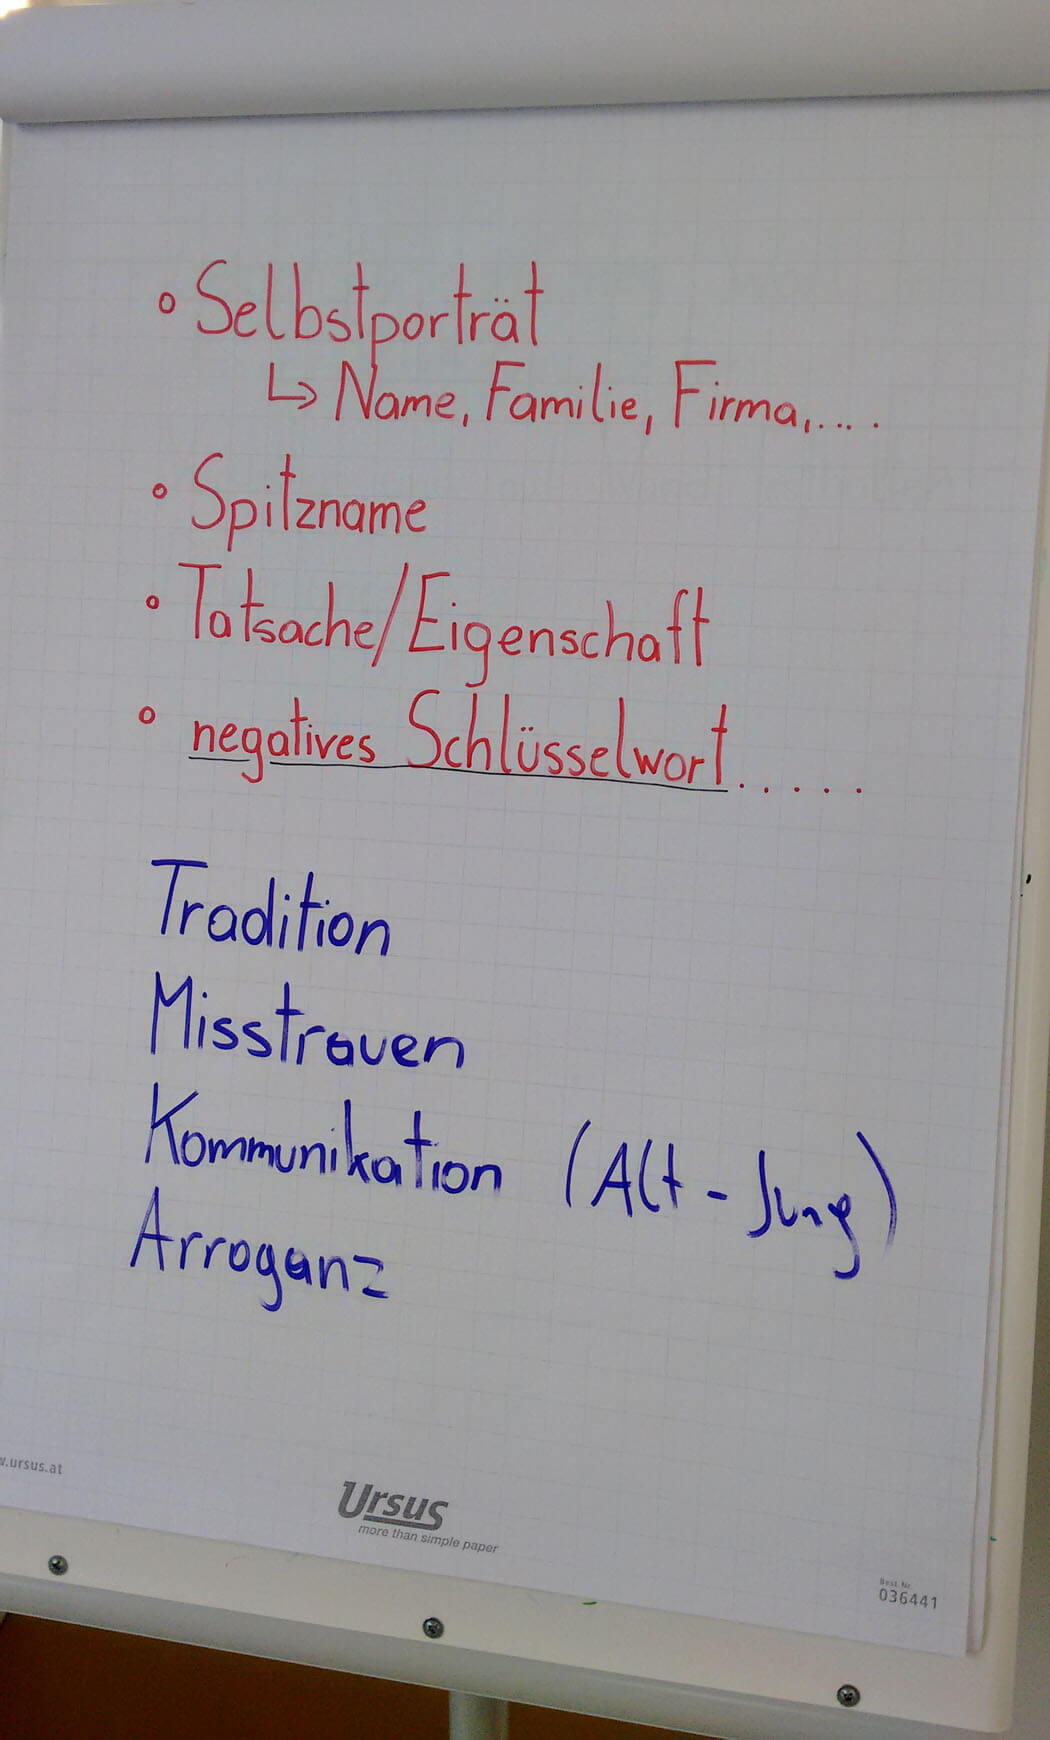 ° Selbstporträt
↳ Name, Familie, Firma,....
° Spitzname
° Tatsache/Eigenschaft
° negatives Schlüsselwort.....
Tradition
Misstrauen
Kommunikation (Alt - Jung)
Arroganz
w.ursus.at
Ursus
more than simple paper
Best. Nr.
036441